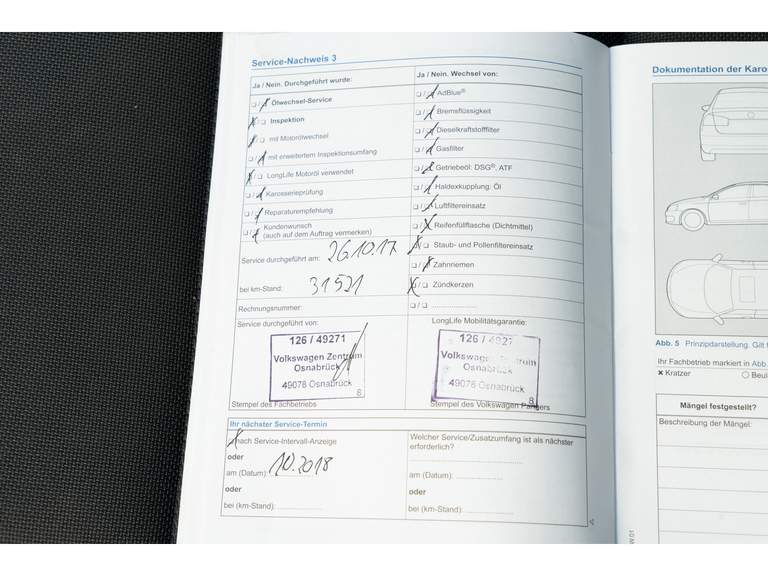 Service-Nachweis 3
Ja / Nein. Durchgeführt wurde:
Ölwechsel-Service
Inspektion
mit Motorölwechsel
mit erweitertem Inspektionsumfang
LongLife Motoröl verwendet
Karosserieprüfung
Reparaturempfehlung
Kundenwunsch
(auch auf dem Auftrag vermerken)
Service durchgeführt am: 26.10.17
bei km-Stand: 31521
Rechnungsnummer:
Service durchgeführt von:
126 / 49271
Volkswagen Zentrum
Osnabrück
49078 Osnabrück
8
Stempel des Fachbetriebs
Ja / Nein. Wechsel von:
AdBlue®
Bremsflüssigkeit
Dieselkraftstofffilter
Gasfilter
Getriebeöl: DSG®, ATF
Haldexkupplung: Öl
Luftfiltereinsatz
Reifenfüllflasche (Dichtmittel)
Staub- und Pollenfiltereinsatz
Zahnriemen
Zündkerzen
LongLife Mobilitätsgarantie:
126 / 4927
Volkswagen Zentrum
Osnabrück
49078 Osnabrück
8
Stempel des Volkswagen Partners
Ihr nächster Service-Termin
nach Service-Intervall-Anzeige
oder
am (Datum): 10.2018
oder
bei (km-Stand):
Welcher Service/Zusatzumfang ist als nächster
erforderlich?
am (Datum):
oder
bei (km-Stand):
Dokumentation der Karos
Abb. 5 Prinzipdarstellung. Gilt f
Ihr Fachbetrieb markiert in Abb.
x Kratzer
Beul
Mängel festgestellt?
Beschreibung der Mängel: